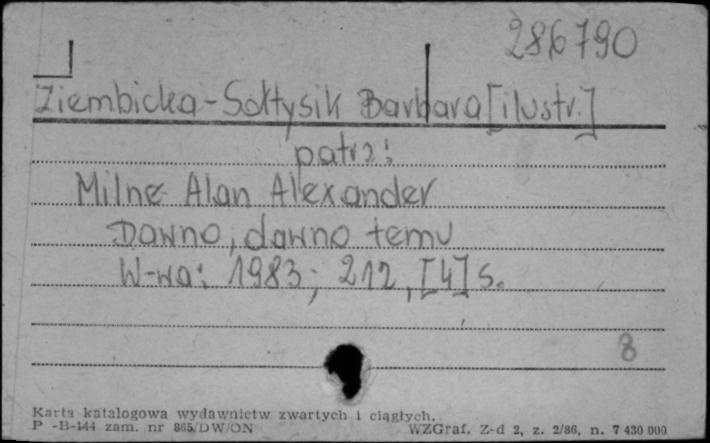 286790
Ziembicka-Sołtysik Barbara [ilustr.]
patrz:
Milne Alan Alexander
Dawno, dawno temu
W-wa: 1983; 212, [4] s.
8
Karta katalogowa wydawnictw zwartych i ciągłych.
P -B-144 zam. nr 865/DW/ON WZGraf. Z-d 2, z. 2/86, n. 7 430 000